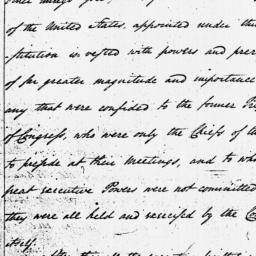 of the United States, appointed under this
stitution is vested with powers and prer
of far greater magnitude and importance
any that were confided to the former Pre
of Congress, who were only the Chiefs of th
to preside at their Meetings, and to who
great executive Powers were not committed
they were all held and exercised by the Co
itself.